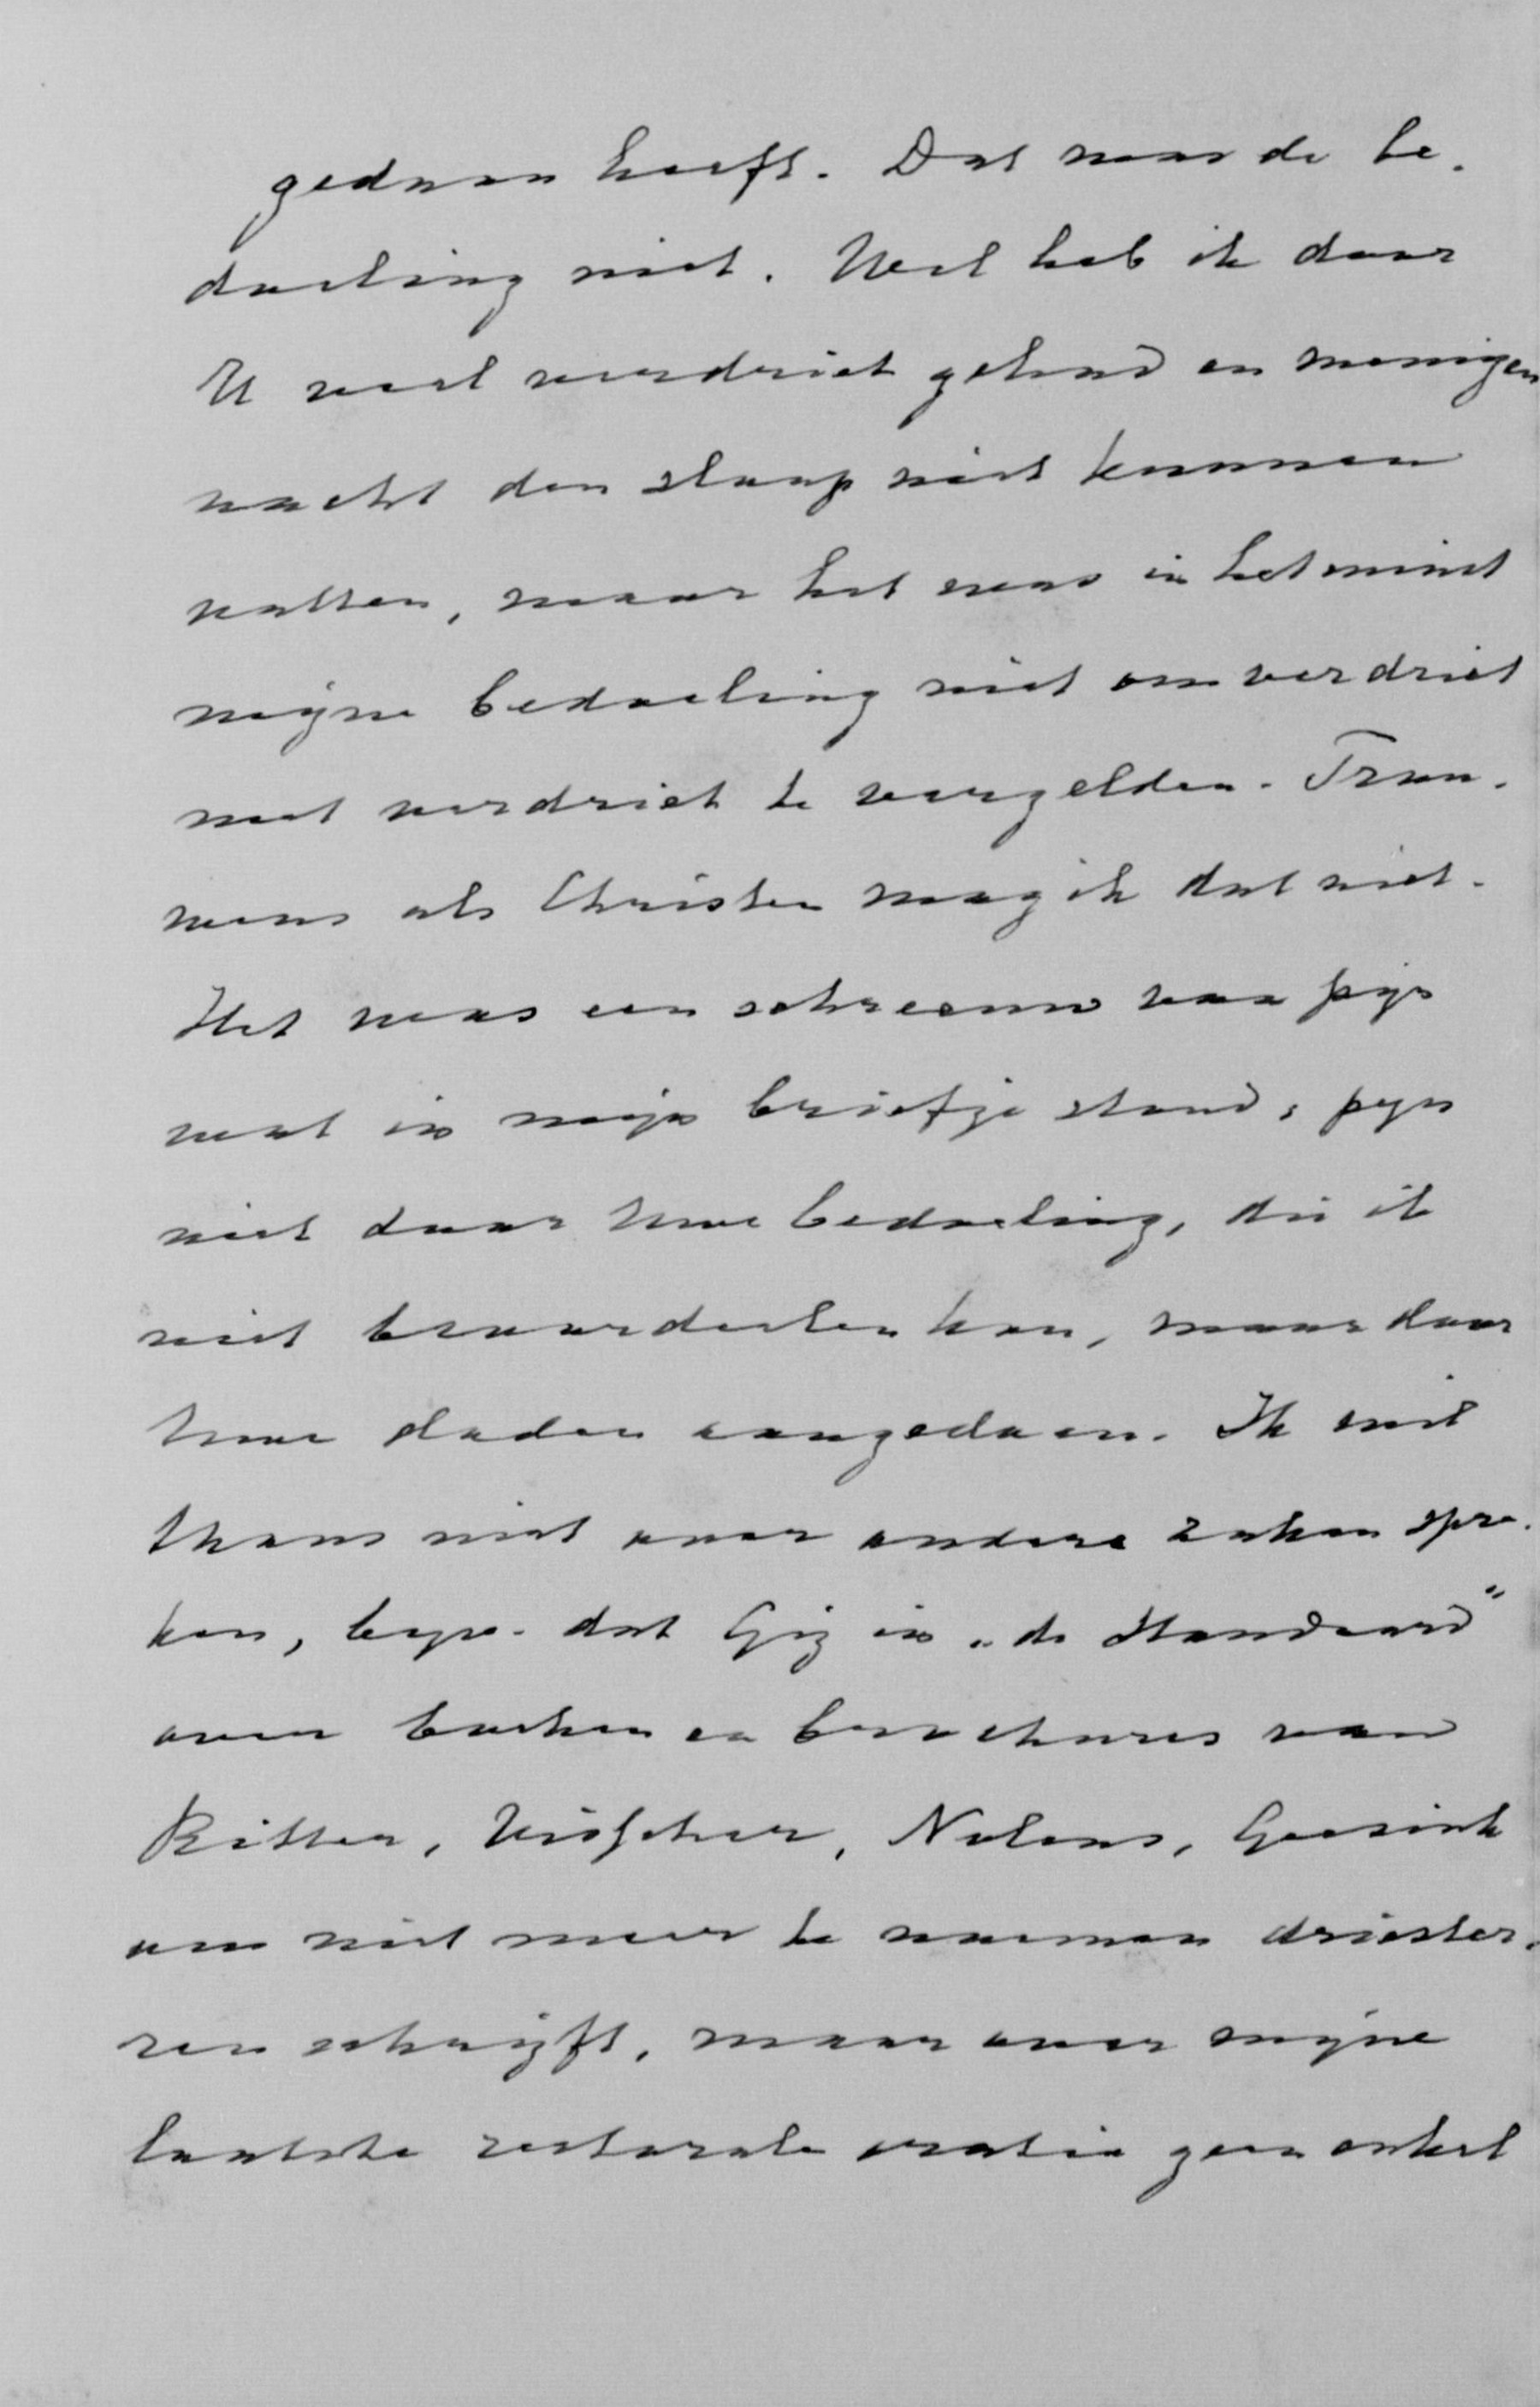 gedaan heeft. Dat was de be-
doeling niet. Wel heb ik door
U veel verdriet gehad en menigen
nacht den slaap niet kunnen
vatten, maar het was in het minst
mijne bedoeling niet om verdriet
met verdriet te vergelden. Trou-
wens als Christen mag ik dat niet.
Het was een schreeuw van pijn
wat in mijn briefje stond, pijn
niet door Uwe bedoeling, die ik
niet beoordeelen kan, maar door
Uwe daden aangedaan. Ik wil
thans niet over andere zaken spre-
ken, bijv. dat Gij in „de Standaard"
over boeken en brochures van
Ritter, Visscher, Nolens, Geesink
om niet meer te noemen driester-
ren schrijft, maar over mijne
laatste rectorale oratie geen enkel